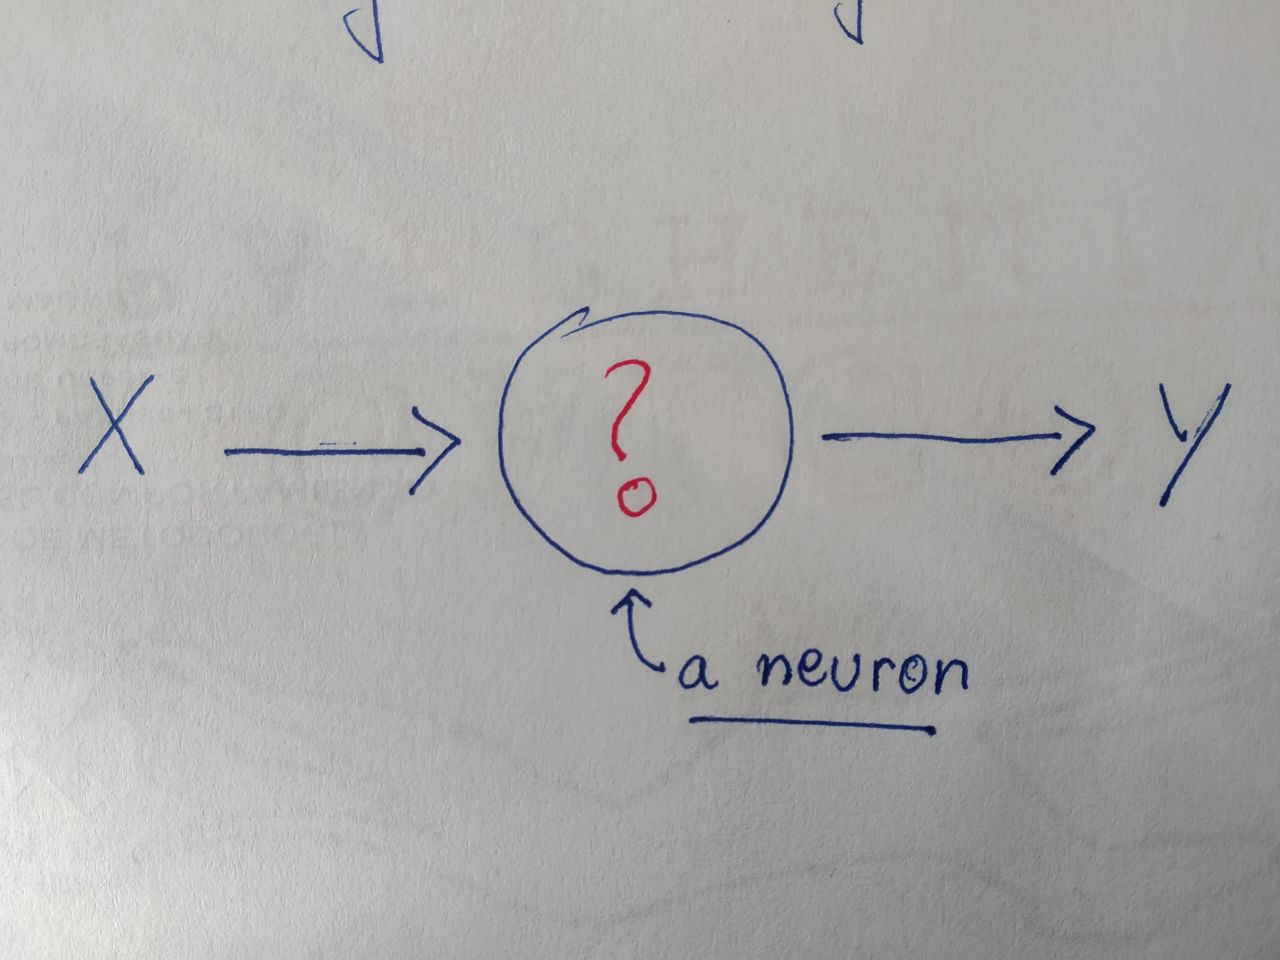 X ? y
a neuron